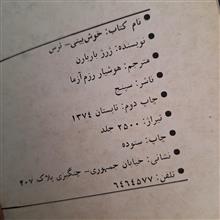 ● نام کتاب: خوش‌بینی- ترس
● نویسنده: ژرژ باربارن
● مترجم: هوشیار رزم‌آزما
● ناشر: سپنج
● چاپ دوم: تابستان ۱۳۷۴
● تیراژ: ۲۵۰۰ جلد
● چاپ: ستوده
● نشانی: خیابان جمهوری- چنگیزی پلاک ۲۰۷
● تلفن: ۶۴۶۴۵۷۷